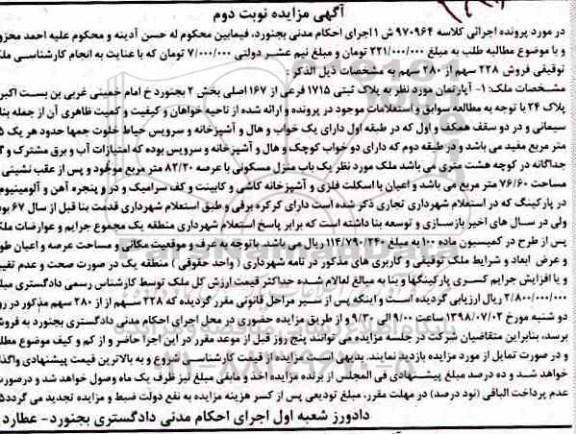 آگهی مزایده نوبت دوم
در مورد پرونده اجرائی کلاسه ۹۷۰۹۶۴ ش ۱ اجرای احکام مدنی بجنورد، فیمابین محکوم له حسن آدینه و محکوم علیه احمد
و با موضوع مطالبه طلب به مبلغ ۲۲۱/۰۰۰/۰۰۰ تومان و مبلغ نیم عشر دولتی ۷/۰۰۰/۰۰۰ تومان که با عنایت به انجام کارشناسی
توقیفی فروش ۲۲۸ سهم از ۲۸۰ سهم به مشخصات ذیل الذکر:
مشخصات ملک: ۱- آپارتمان مورد نظر به پلاک ثبتی ۱۷۱۵ فرعی از ۱۶۷ اصلی بخش ۲ بجنورد خ امام خمینی غربی بن بست
پلاک ۲۴ با توجه به مطالعه سوابق و استعلامات موجود در پرونده و ارائه شده از ناحیه خواهان و کیفیت و کمیت ظاهری آن از جمله
سیمانی و در دو سقف همکف و اول که در طبقه اول دارای یک خواب و هال و آشپزخانه و سرویس حیاط خلوت جمعا حدود هر یک
متر مربع مفید می باشد و در طبقه دوم که دارای دو خواب کوچک و هال و آشپزخانه و سرویس بوده که امتیازات آب و برق مشترک و
جداگانه در کوچه هشت متری می باشد ملک مورد نظر یک باب منزل مسکونی با عرصه ۸۲/۲۰ متر مربع موجود و پس از عقب نشینی
مساحت ۷۶/۶۰ متر مربع می باشد و اعیان با اسکلت فلزی و آشپزخانه کاشی و کابینت و کف سرامیک و در و پنجره آهن و آلومینیوم
در پارکینگ که در استعلام شهرداری تجاری ذکر شده است دارای کرکره برقی و طبق استعلام شهرداری قدمت بنا قبل از سال ۶۷
ولی در سال های اخیر بازسازی و توسعه بنا داشته است که برابر پاسخ استعلام شهرداری منطقه یک مجموع جرایم و عوارضات
پس از طرح در کمیسیون ماده ۱۰۰ به مبلغ ۱۱۴/۷۹۰/۲۴۰ ریال می باشد. باتوجه به عرف و موقعیت مکانی و مساحت عرصه و اعیان
و عرض ابعاد و شرایط ملک توقیفی و کاربری های مذکور در نامه شهرداری (واحد حقوقی) منطقه یک در صورت صحت و عدم
و یا افزایش جرایم کسری پارکینگها و بنا به مبالغ حداکثر قیمت ارزش کل ملک توسط کارشناس رسمی دادگستری
۲/۸۰۰/۰۰۰/۰۰۰ ریال ارزیابی گردیده است و اینکه پس از سیر مراحل قانونی مقرر گردیده که ۲۲۸ سهم از ۲۸۰ سهم مذکور در
دو شنبه مورخ ۱۳۹۸/۰۷/۰۲ ساعت ۹/۰۰ الی ۹/۳۰ از طریق مزایده حضوری در محل اجرای احکام مدنی دادگستری بجنورد به
برسد، بنابراین متقاضیان شرکت در جلسه مزایده می توانند پنج روز قبل از موعد مقرر در این اجرا حاضر و از کم و کیف موضوع
و در صورت تمایل از مورد مزایده بازدید نمایند. بدیهی است مزایده از قیمت کارشناسی شروع و به بالاترین قیمت پیشنهادی
خواهد شد و ده درصد مبلغ پیشنهادی فی المجلس از برنده مزایده اخذ و مابقی مبلغ نیز ظرف یک ماه وصول خواهد شد و
عدم پرداخت الباقی (نود درصد) در مهلت مقرر، مبلغ تودیعی پس از کسر هزینه مزایده به نفع دولت ضبط و مزایده تجدید می گردد
دادورز شعبه اول اجرای احکام مدنی دادگستری بجنورد- عطارد